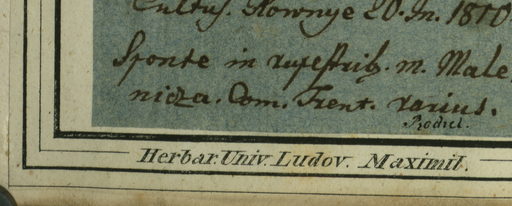 Cultus. Rownye 20. Jn. 1810
Sponte in rupestrib. m. Male
nicza. Com. Trent. rarius.
Rochel.
Herbar. Univ. Ludov. Maximil.